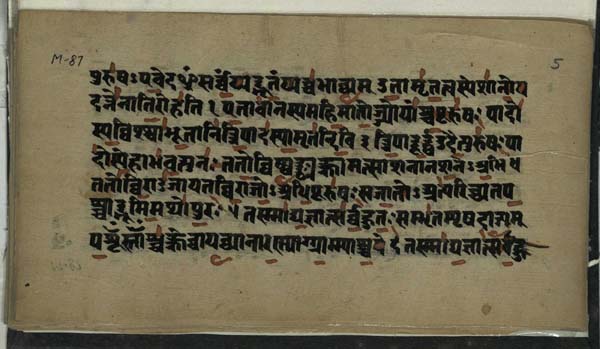 M-87
5
पुरुषऽएवेदᳪसर्व्वंय्यद्भूतंय्यच्चभाव्यम् उतामृतत्वस्येशानोय
दन्नेनातिरोहति २ एतावानस्यमहिमातोज्यायाँश्चपूरुषः पादो
स्यव्विश्वाभूतानित्रिपादस्यामृतन्दिवि ३ त्रिपादूर्द्ध्वउदैत्पुरुषःपा
दोस्येहाभवत्पुनः ततोव्विष्वङ्व्यक्रामत्साशनानशनेऽअभि ४
ततोव्विराडजायतव्विराजोऽअधिपूरुषः सजातोऽअत्यरिच्यतप
श्चाद्भूमिमथोपुरः ५ तस्माद्यज्ञात्सर्व्वहुतःसम्भृतम्पृषदाज्यम्
पशूँस्ताँश्चक्रेव्वायव्यानारण्याग्राम्याश्चये ६ तस्माद्यज्ञात्सर्वहु